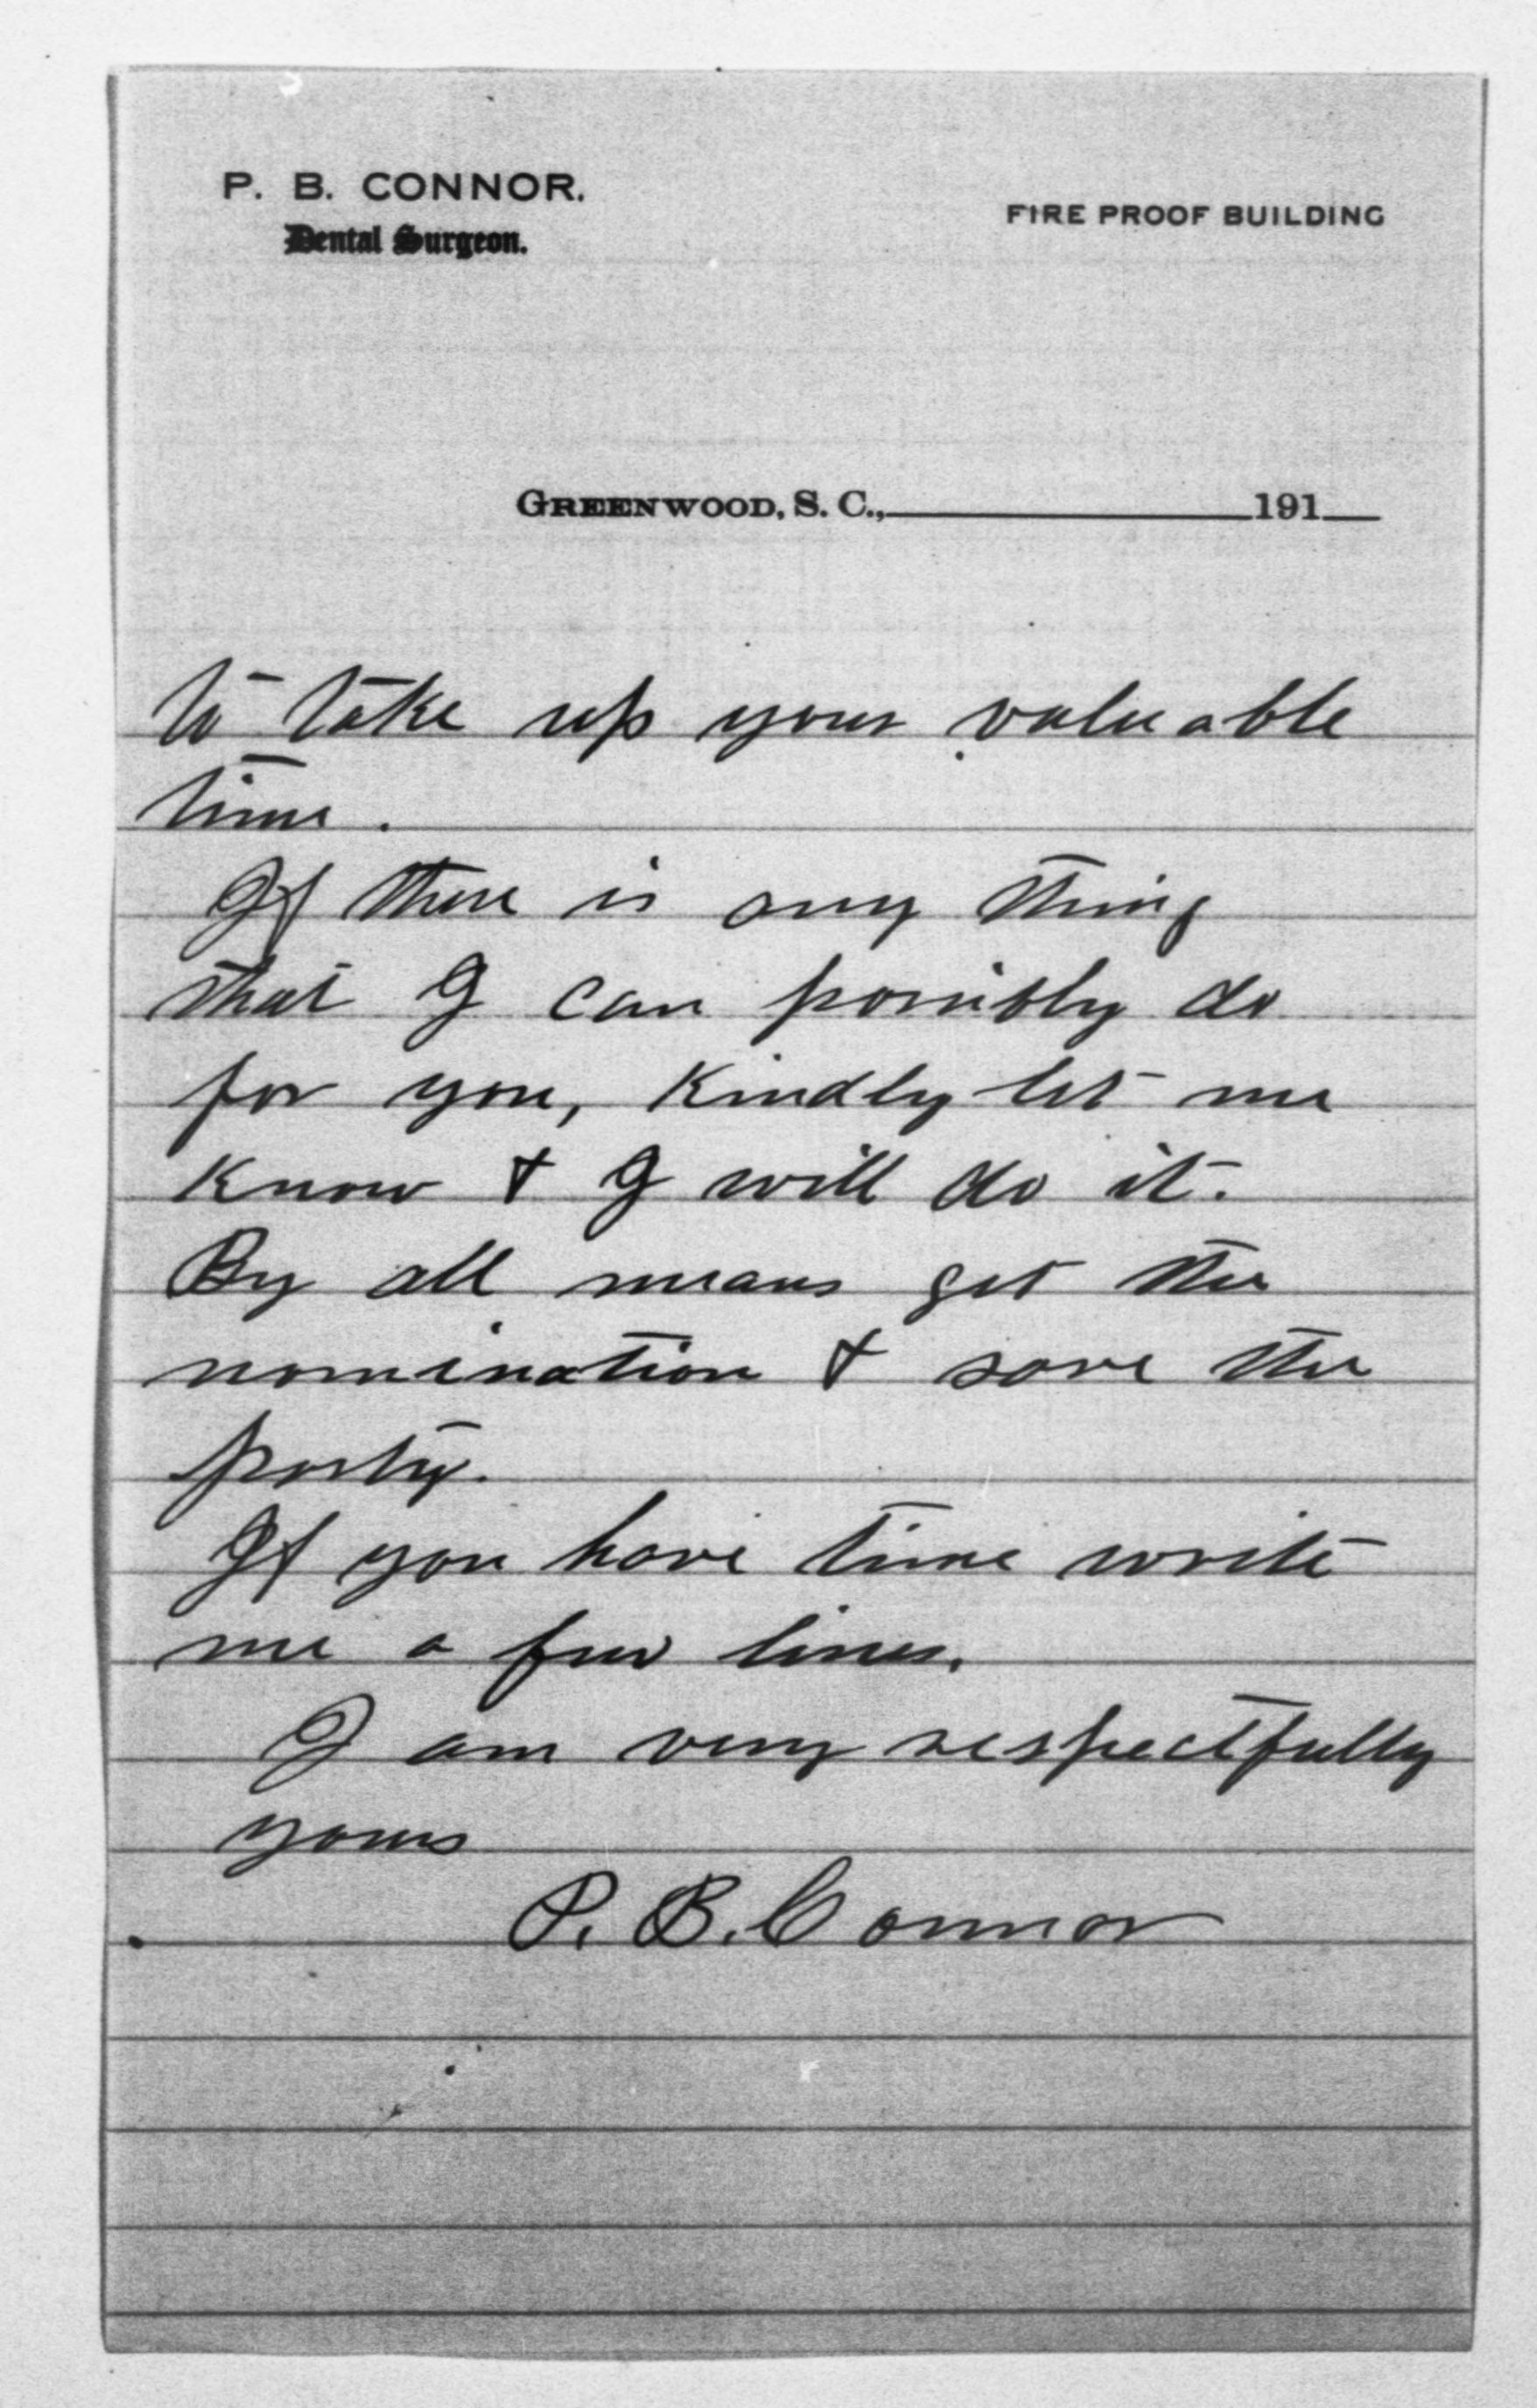 P. B. CONNOR.
Dental Surgeon.
FIRE PROOF BUILDING
GREENWOOD, S. C., 191
to take up your valuable
time.
If there is any thing
that I can possibly do
for you, Kindly let me
Know & I will do it.
By all means get the
nomination & save the
party.
If you have time write
me a few lines.
I am very respectfully
yours
P. B. Connor